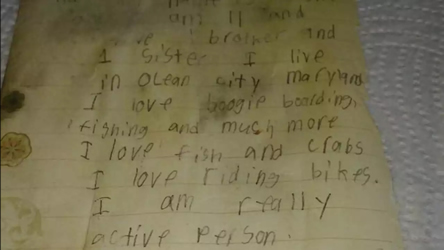 am 11 and
brother and
1 sister I live
in Ocean city maryland
I love boogie boarding,
fishing and much more
I love fish and crabs
I love riding bikes.
I am really
active person.